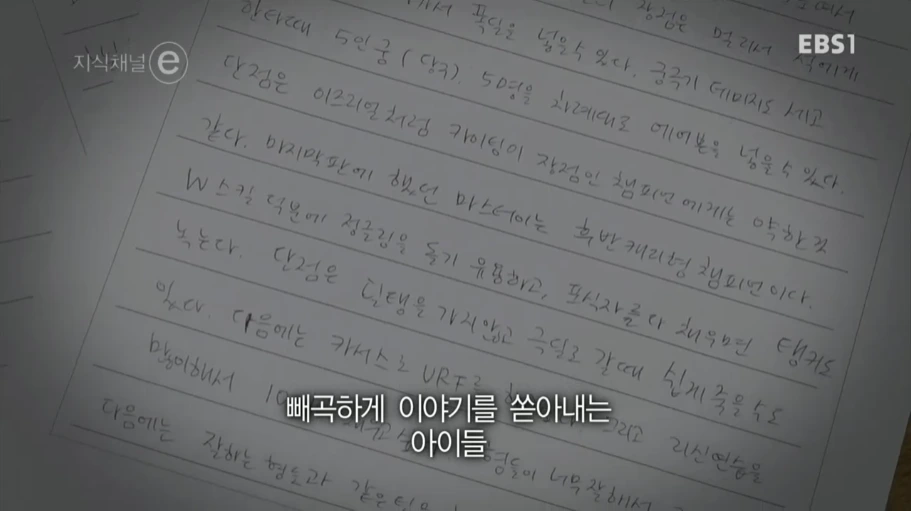 지식채널 e
EBS1
장점은 멀리서 적에게
폭딜을 넣을수 있다. 궁극기 데미지도 세고
한타때 5인궁 ( 당구), 5명을 차례대로 에어본을 넣을수 있다.
단점은 이즈리얼처럼 카이팅이 장점인 챔피언에게는 약한것
같다. 마지막판에 했던 마스터이는 후반캐리형 챔피언이다.
W스킬 덕분에 정글링을 돌기 유용하고, 포식자를 다 채우면 탱커도
녹는다. 단점은 딜탱을 가지않고 극딜로 갈때 쉽게 죽을수도
있다. 다음에는 카서스로 URF를 그리고 리신연습을
많이해서 형들이 너무 잘해서
다음에는 잘하는 형들과 같은팀을
빼곡하게 이야기를 쏟아내는
아이들